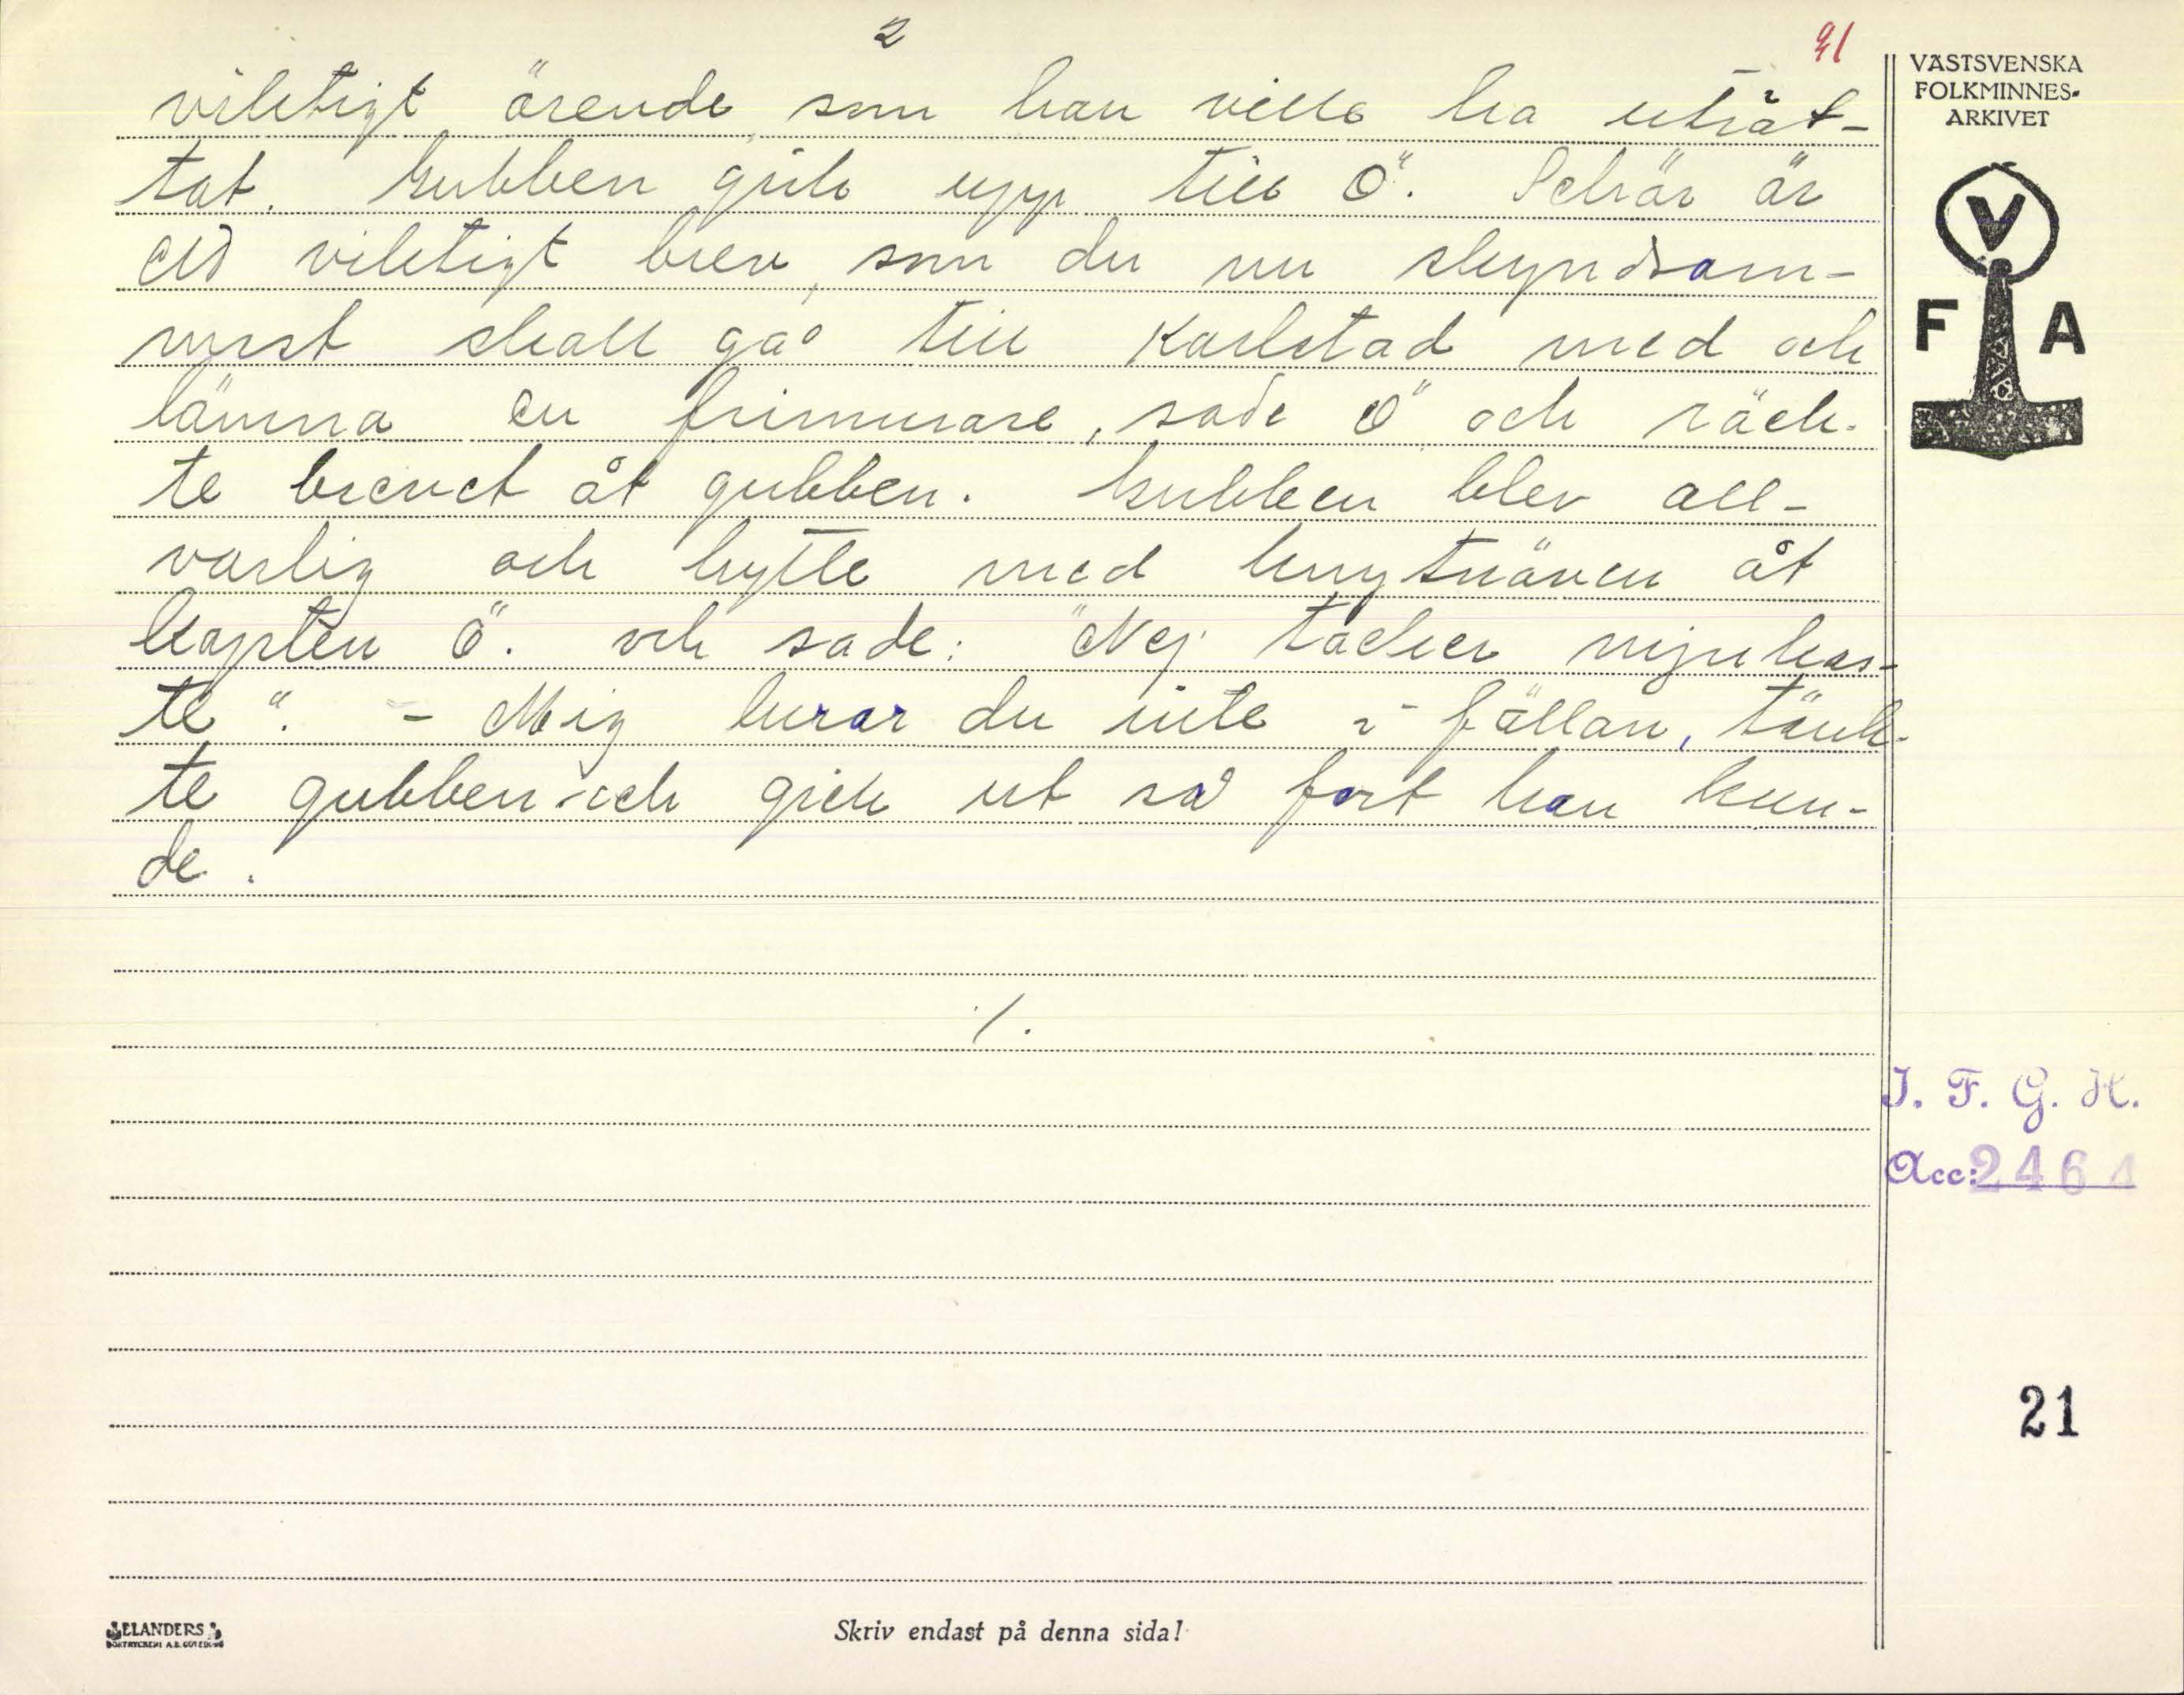 2
91
viktigt ärende, som han ville ha uträt-
tat. Gubben gick upp till Ö. Sehär är
ett viktigt brev, som du nu skyndsam-
mast skall gå till Karlstad med och
lämna en frimurare, sade Ö och räck-
te brevet åt gubben. Gubben blev all-
varlig och hytte med knytnäven åt
kapten Ö. och sade: "Nej tacker mjukas-
te". - Mig lurar du inte i fällan, tänk-
te gubben och gick ut så fort han kun-
de.
./.
VÄSTSVENSKA
FOLKMINNES-
ARKIVET
V
F A
I. F. G. H.
Acc: 2464
21
ELANDERS
BOKTRYCKERI A.B. GÖTEBORG
Skriv endast på denna sida!